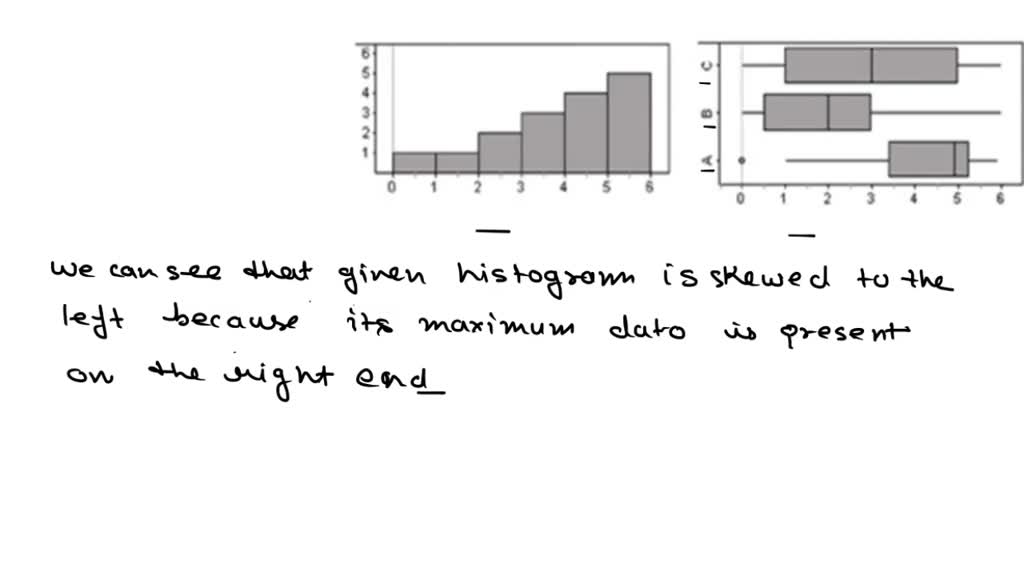 6
5
4
3
2
1
0 1 2 3 4 5 6
C
B
A
0 1 2 3 4 5 6
we can see that given histogram is skewed to the
left because its maximum data is present
on the right end